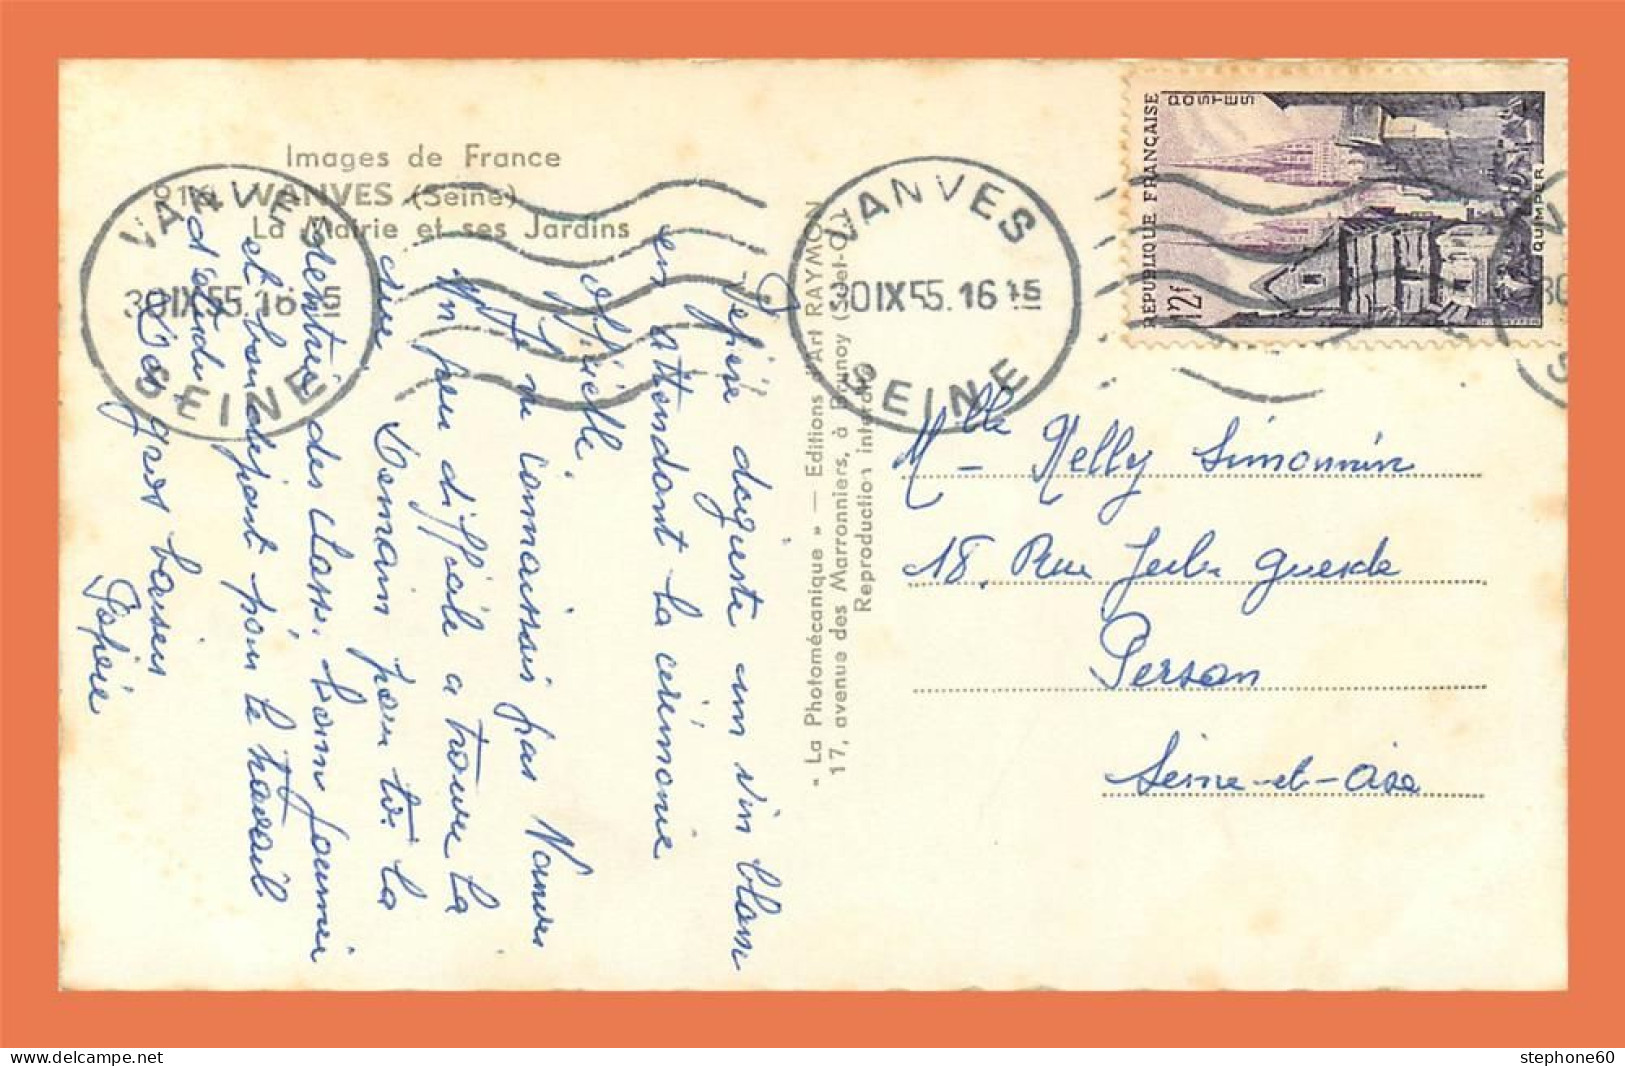 Images de France
WANVES (Seine)
La Mairie et ses Jardins
VANVES
30 IX 55. 16 15
SEINE
Pépée déguste un vin blanc
en attendant la cérémonie
officielle.
Je ne connaissais pas Vanves
un peu difficile a trouver la
rue.
Demain pour toi la
rentrée des classes. bonne journée
et bon départ pour le travail
d'étude.
Des gros baisers
Pépée
« La Photomécanique » — Editions d'Art RAYMON
17, avenue des Marronniers, à Brunoy (S.-et-O.)
Reproduction interdite
VANVES
30 IX 55. 16 15
SEINE
REPUBLIQUE FRANÇAISE
POSTES
12f
QUIMPER
Mlle Nelly Simonnin
18. Rue Jules Guesde
Persan
Seine-et-Oise
stephone60